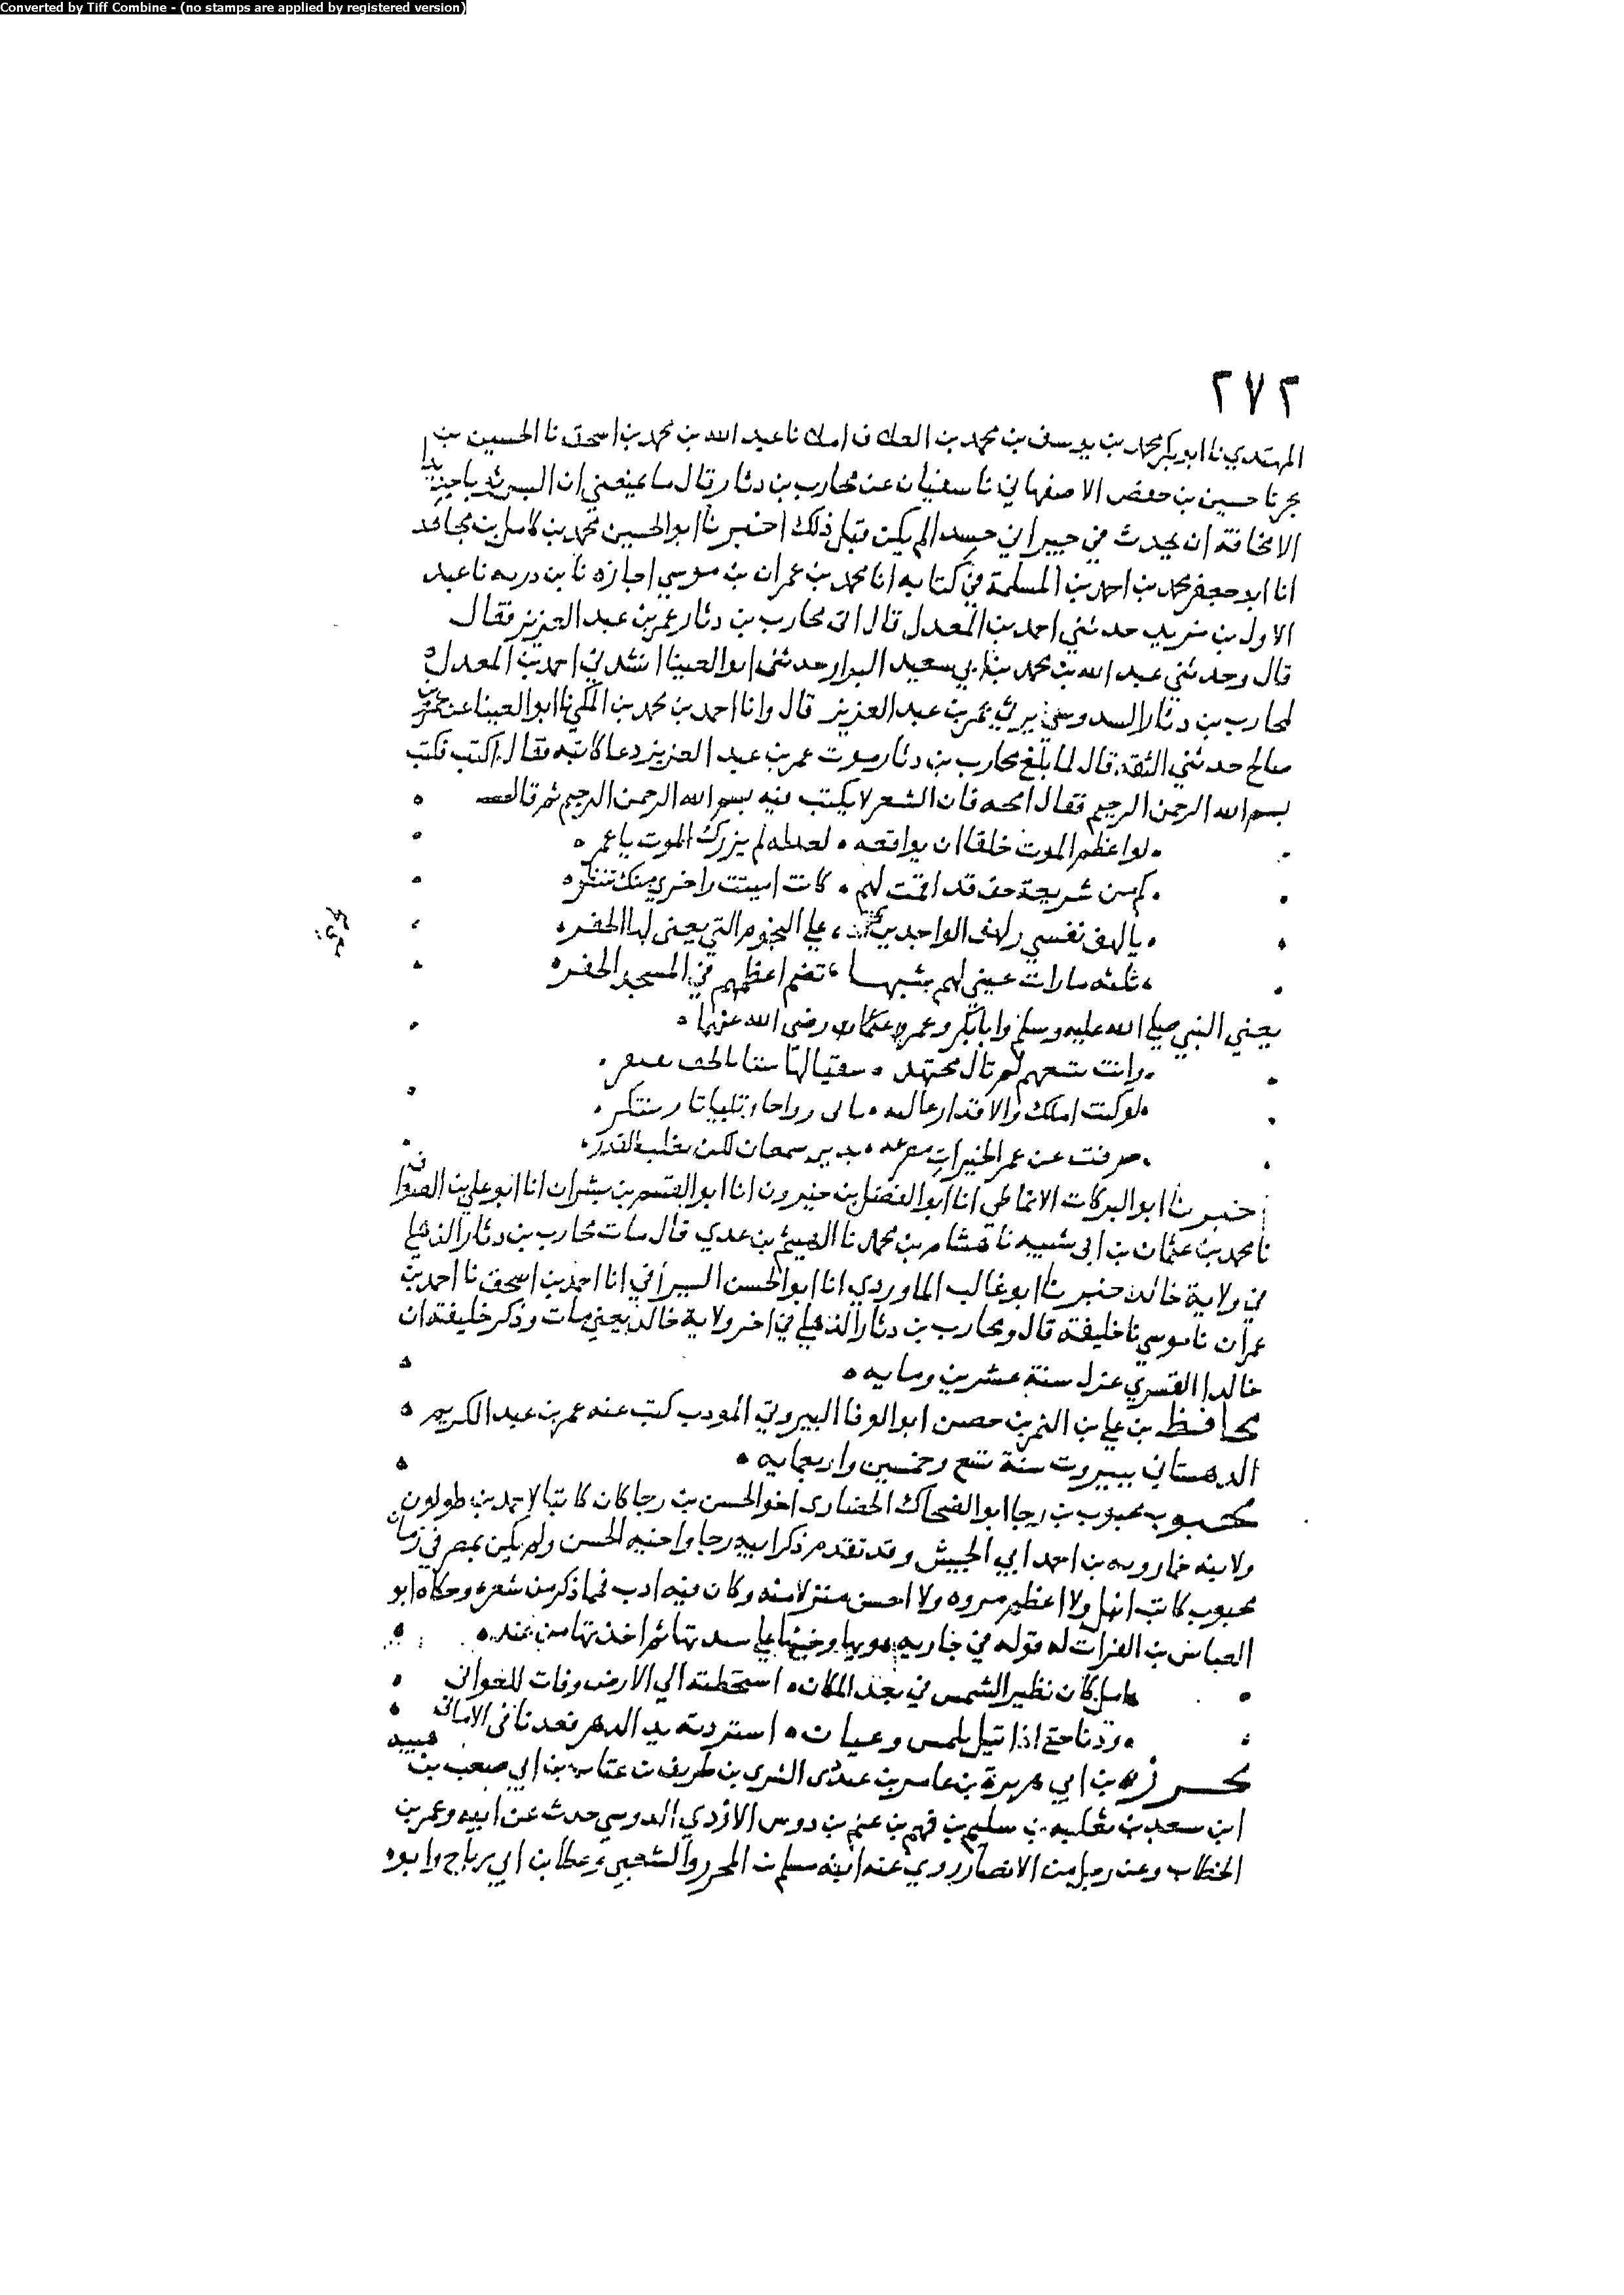 Converted by Tiff Combine - (no stamps are applied by registered version)
٢٧٢
المهتدي نا ابو بكر محمد بن يوسف بن محمد بن العلاف املا نا عبد الله بن محمد بن اسحق نا الحسين بن
بحر نا حسين بن حفص الاصفهاني نا سفيان عن محارب بن دثار قال ما يمنعني ان البس ثوبا جديدا
الا مخافة ان يحدث في جيراني حسدا لم يكن قبل ذلك اخبرنا ابو الحسين محمد بن كامل بن مجاهد
انا ابو جعفر محمد بن احمد بن المسلمة في كتابه انا محمد بن عمران بن موسي اجازه نا بن دريد نا عبد
الاول بن مزيد حدثني احمد بن المعدل قال اتى محارب بن دثار عمر بن عبد العزيز فقال
قال وحدثني عبد الله بن محمد بن ابي سعيد البزار حدثني ابو العينا انشدني احمد بن المعدل
لمحارب بن دثار السدوسي يرثي عمر بن عبد العزيز قال وانا احمد بن محمد بن المكي نا ابو العينا عن عمر بن
صالح حدثني الثقة قال لما بلغ محارب بن دثار موت عمر بن عبد العزيز دعا كاتبه فقال اكتب فكتب
بسم الله الرحمن الرحيم فقال امحه فان الشعر لا يكتب فيه بسم الله الرحمن الرحيم ثم قال
لو اعظم الموت خلقا ان يواقعه لعدله لم يزرك الموت يا عمر
كم من شريعة حق قد اقمت لهم كانت اميتت واخرى منك تنتظر
يا لهف نفسي ولهف الواجدين علي النجوم التي يعنى لها الحفر
ثلثه ما رات عيني لهم شبها تضم اعظمهم في المسجد الحفر
يعني النبي صلي الله عليه وسلم وابا بكر وعمر رضي الله عنهما
وانت تتبعهم لم تال مجتهد سقيا لها سننا بالحق
لو كنت املك والاقدار غالبه رواحا وتبيانا وتبتكر
صرفت عن عمر الخيرات مصرعه بدير سمعان لكن يغلب القدر
اخبرنا ابو البركات الانماطي انا ابو الفضل بن خيرون انا ابو القسم بن بشران انا ابو علي بن الصواف
نا محمد بن عثمان بن ابي شيبه نا هشام بن محمد نا الهيثم بن عدي قال مات محارب بن دثار الذهلي
في ولاية خالد اخبرنا ابو غالب الماوردي انا ابو الحسن السيرافي انا احمد بن اسحق نا احمد بن
عمران نا موسي نا خليفة قال ومحارب بن دثار الذهلي في اخر ولاية خالد يعني مات وذكر خليفة ان
خالدا القسري عزل سنة عشرين ومايه
محافظ بن علي بن النمر بن حصن ابو الوفا البيروتي المودب كتب عنه عمر بن عبد الكريم
الدهستاني ببيروت سنة تسع وخمسين واربعمايه
محبوب بن رجا ابو الضحاك الحضاري اخو الحسن بن رجا كان كاتبا لاحمد بن طولون
ولابنه خمارويه بن احمد ابي الجيش وقد تقدم ذكر ابيه رجا واخيه الحسن ولم يكن بمصر في زمان
محبوب كاتب انبل ولا اعظم مروه ولا احسن منزلا منه وكان فيه ادب فما ذكر من شعره وحكاه ابو
العباس بن الفرات له قوله في جاريه هويها علي سدتها ثم اخذتها من عنده
امل كان نظير الشمس في بعد المكان استحطته الي الارض وفات للعوالي
حتي اذا نيل بلمس وعيان استردته يد الدهر فعدنا في الاماني
محرز بن ابي هريرة بن عامر بن عبد ذي الشرى بن طريف بن عتاب بن ابي صعب بن هنيه
ابن سعد بن ثعلبه بن سليم بن فهم بن غنم بن دوس الازدي الدوسي حدث عن ابيه وعمر بن
الخطاب وعن رجل من الانصار روي عنه ابنه مسلم بن المحرر والشعبي وعطا بن ابي رباح وابوه